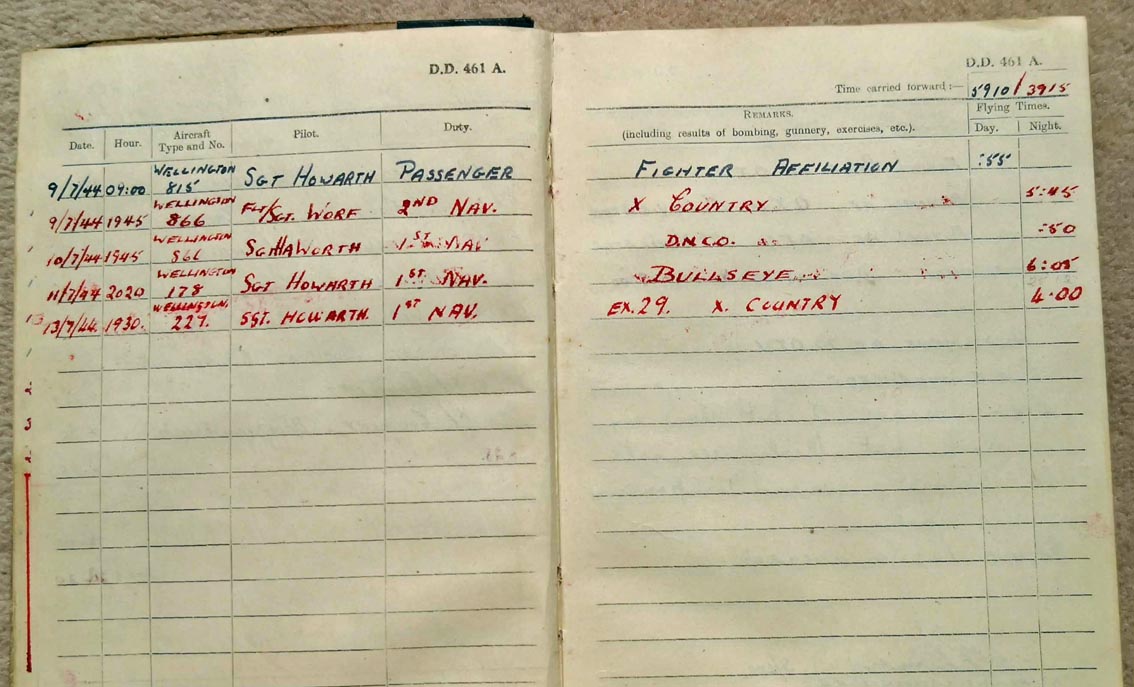 D.D. 461 A.
Date. Hour. Aircraft Type and No. Pilot. Duty.
9/7/44 09:00 WELLINGTON 815 SGT HOWARTH PASSENGER
9/7/44 1945 WELLINGTON 866 FLT/SGT. WORF 2ND NAV.
10/7/44 1945 WELLINGTON SGT HAWORTH 1ST NAV
11/7/44 2020 WELLINGTON 178 SGT HOWARTH 1ST. NAV.
13/7/44. 1930. WELLINGTON. 227. SGT. HOWARTH. 1ST NAV.
D.D. 461 A.
Time carried forward:— 5910/3915
REMARKS. (including results of bombing, gunnery, exercises, etc.). Flying Times. Day. Night.
FIGHTER AFFILIATION :55
X COUNTRY 5:45
D.N.C.O. :50
BULLSEYE 6:05
EX.29. X. COUNTRY 4.00